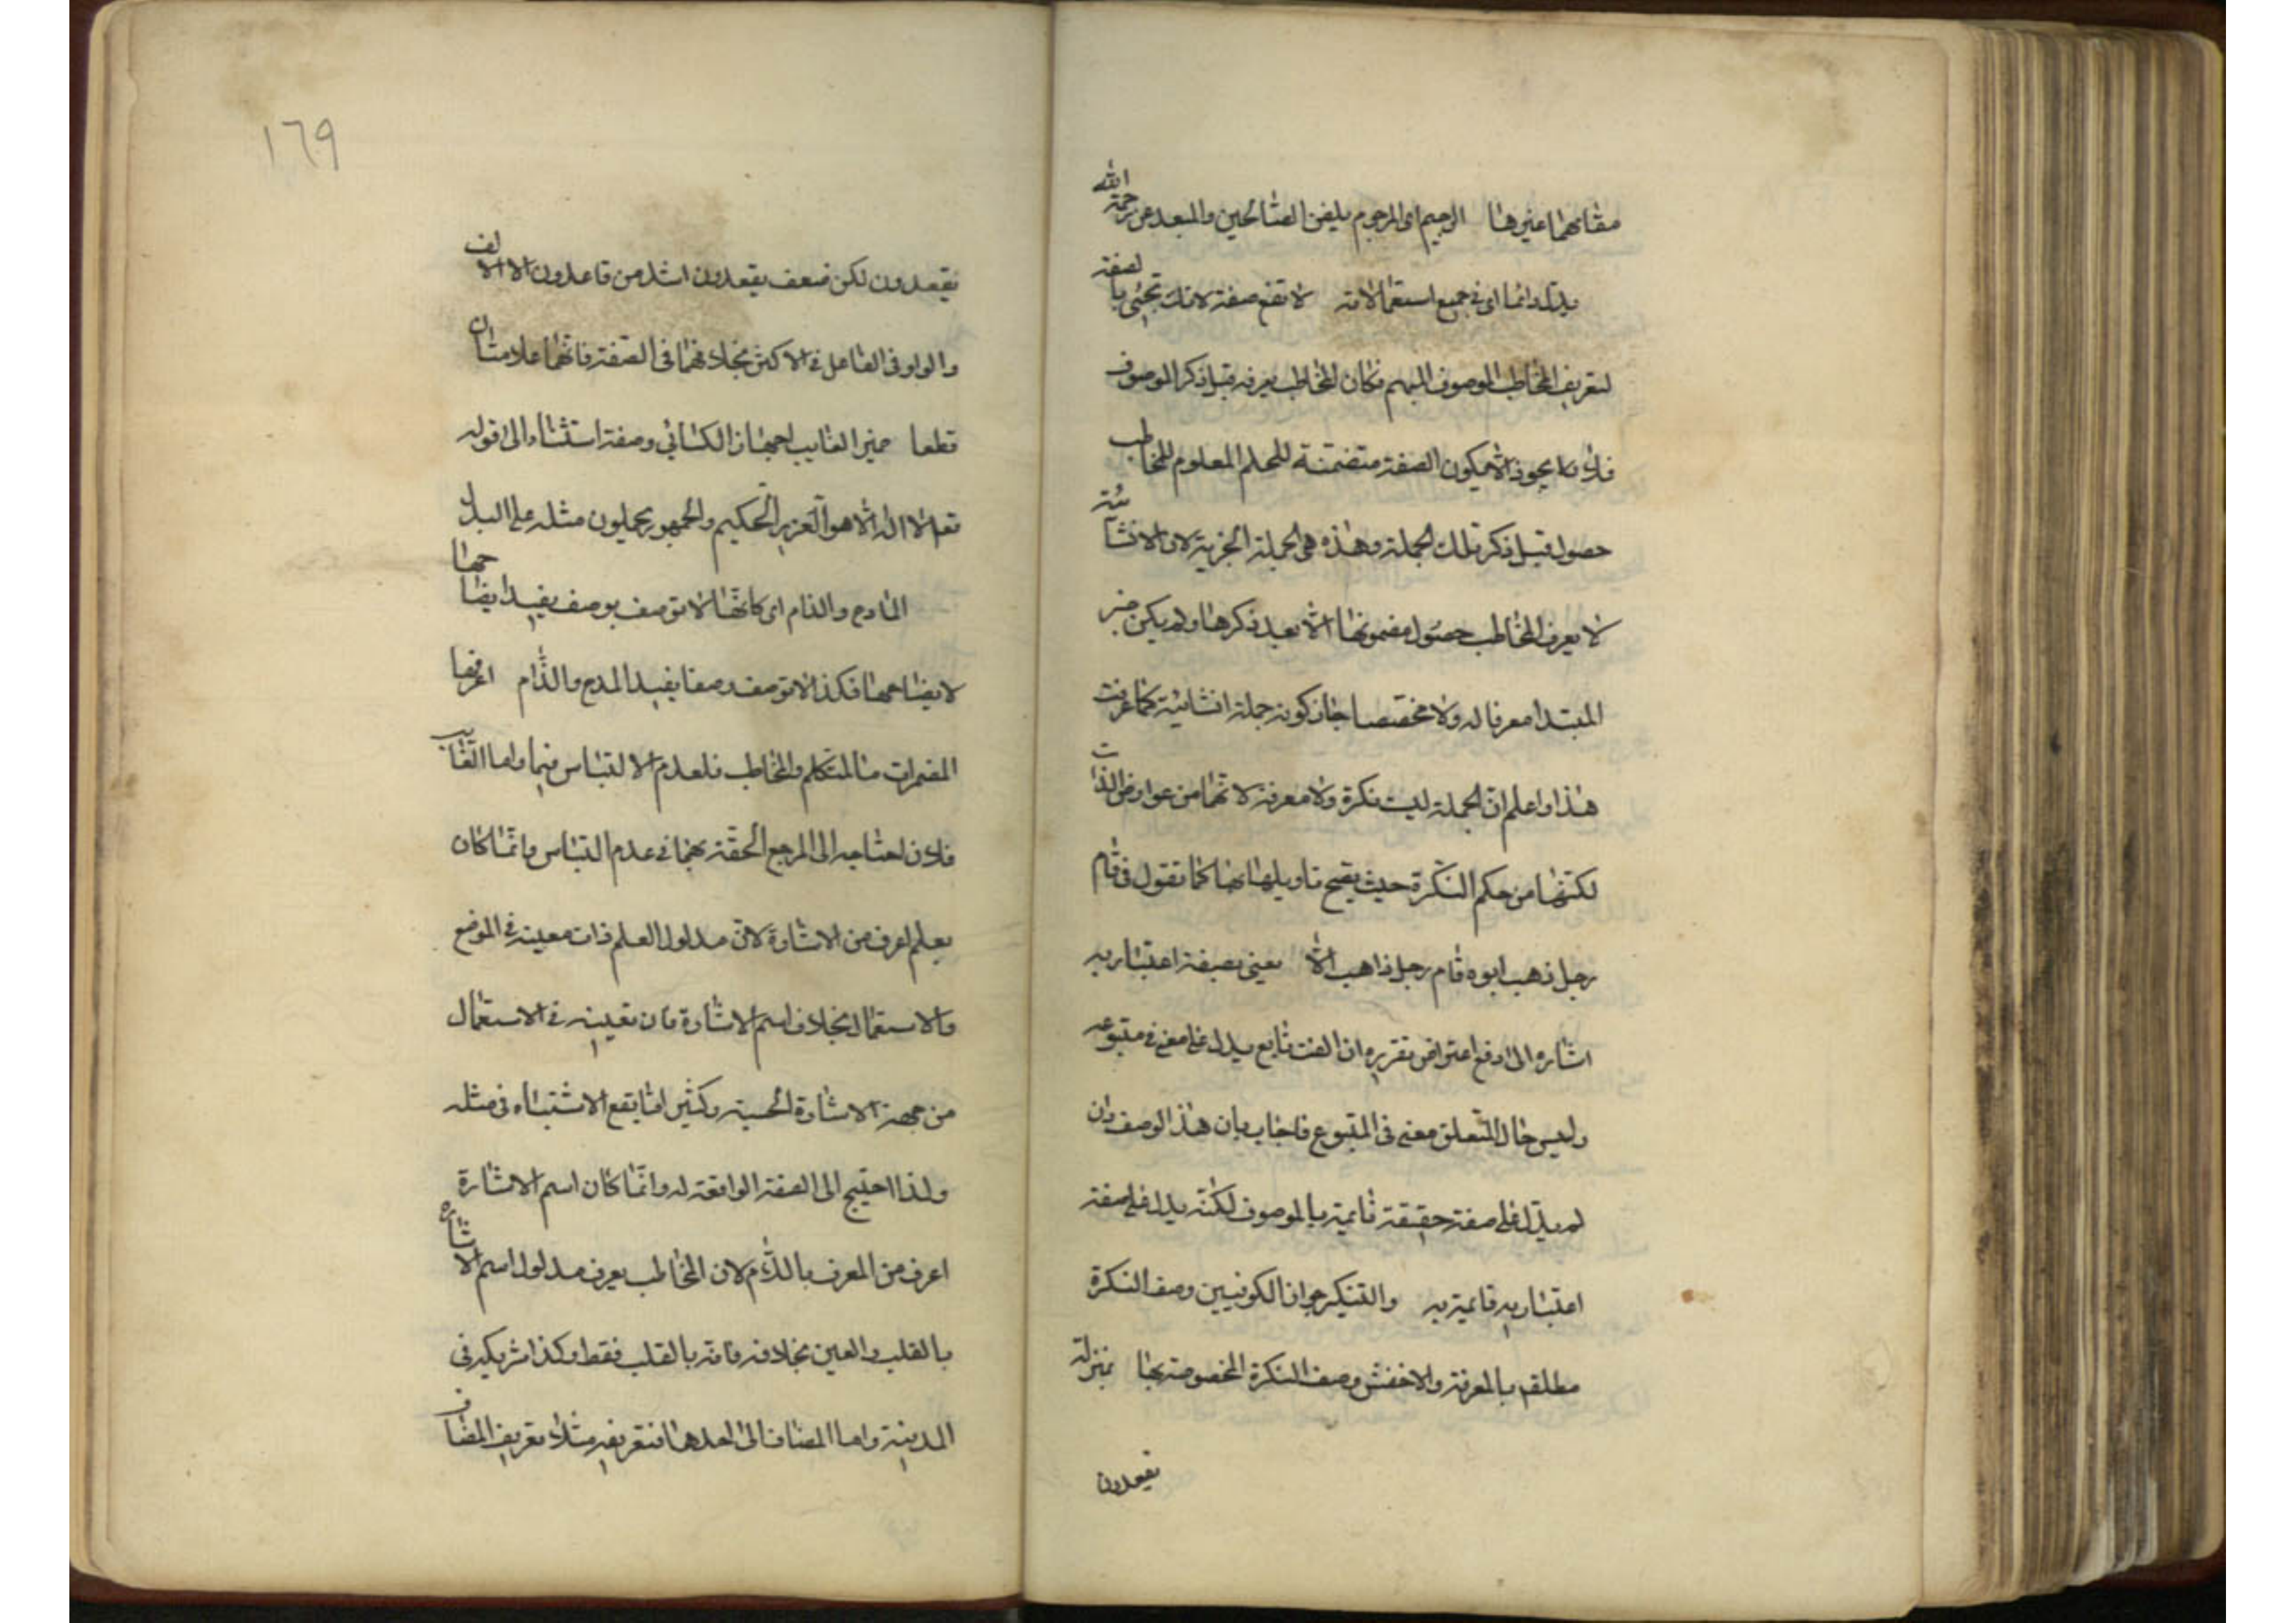 مقامهما غيرهما الرجيم اى المرجوم بلعن اللاعنين والمبعد عن رحمة الله
يدل دائما اى فى جميع استعمالاته لا تقع صفة لانك تجئى بالصفة
لتعريف المخاطب الموصوف المبهم فكان المخاطب يعرفه قبل ذكر الموصوف
فلا يجوز الا كون الصفة متضمنة للحكم المعلوم للمخاطب
حصوله قبل ذكر تلك الجملة وهذه هى الجملة الخبرية لان الانشائية
لا يعرف المخاطب حصول مضمونها الا بعد ذكرها ولم يكن خبر
المبتدا معرفا له ولا مخصصا جاز كونه جملة انشائية كما عرفت
هذا واعلم ان الجملة ليست نكرة ولا معرفة لانهما من عوارض الذات
لكنها من حكم النكرة حيث يصح تاويلها بها كما تقول فى قام
رجل ذهب ابوه قام رجل ذاهب الاب يعنى بصفة اعتبارية
اشاره الى دفع اعتراض تقريره ان النعت تابع يدل على معنى فى متبوعه
وليس حال المتعلق معنى فى المتبوع فاجاب بان هذا الوصف وان
لم يدل على صفة حقيقة قائمة بالموصوف لكنه يدل على صفة
اعتبارية قائمة به والتنكير جواز الكوفيين وصف النكرة
مطلقه بالمعرفة والاخفش وصف النكرة المخصوصة بها بمنزلة
يقعدون
١٦٩
يقعدون لكن ضعف يقعدون اشد من قاعدون لان الالف
والواو فى الفاعل فى الاكثر بخلافهما فى الصفة فانهما علامتان
قطعا ضمير الغايب اجاز الكسائي وصفه استثناء الى قوله
تعالى لا اله الا هو العزيز الحكيم والجمهور يحملون مثله على البدل
المادح والذام اى كما انها لا توصف بوصف يفيد ايضاحها
لايضاحها فكذا لا توصف وصفا يفيد المدح والذام اعرفها
المضمرات ما المتكلم والمخاطب فلعدم الالتباس فيهما واما الغايب
فلان احتياجه الى المرجع الحقه بهما فى عدم التباس وانما كان
بعلم اعرف من الاشارة لان مدلول العلم ذات معينة فى الموضع
والاستعمال بخلاف اسم الاشارة فان تعيينه فى الاستعمال
من جهة الاشارة الحسية وكثير اما يقع الاشتباه فى مثله
ولذا احتيج الى الصفة الواقعة له وانما كان اسم الاشارة
اعرف من المعرف باللام لان المخاطب يعرف مدلول اسم الاشاره
بالقلب والعين بخلافه فانه بالقلب فقط وكذا شريكه فى
المدينة واما المضاف الى احدها فتعريفه مثل تعريف المضاف